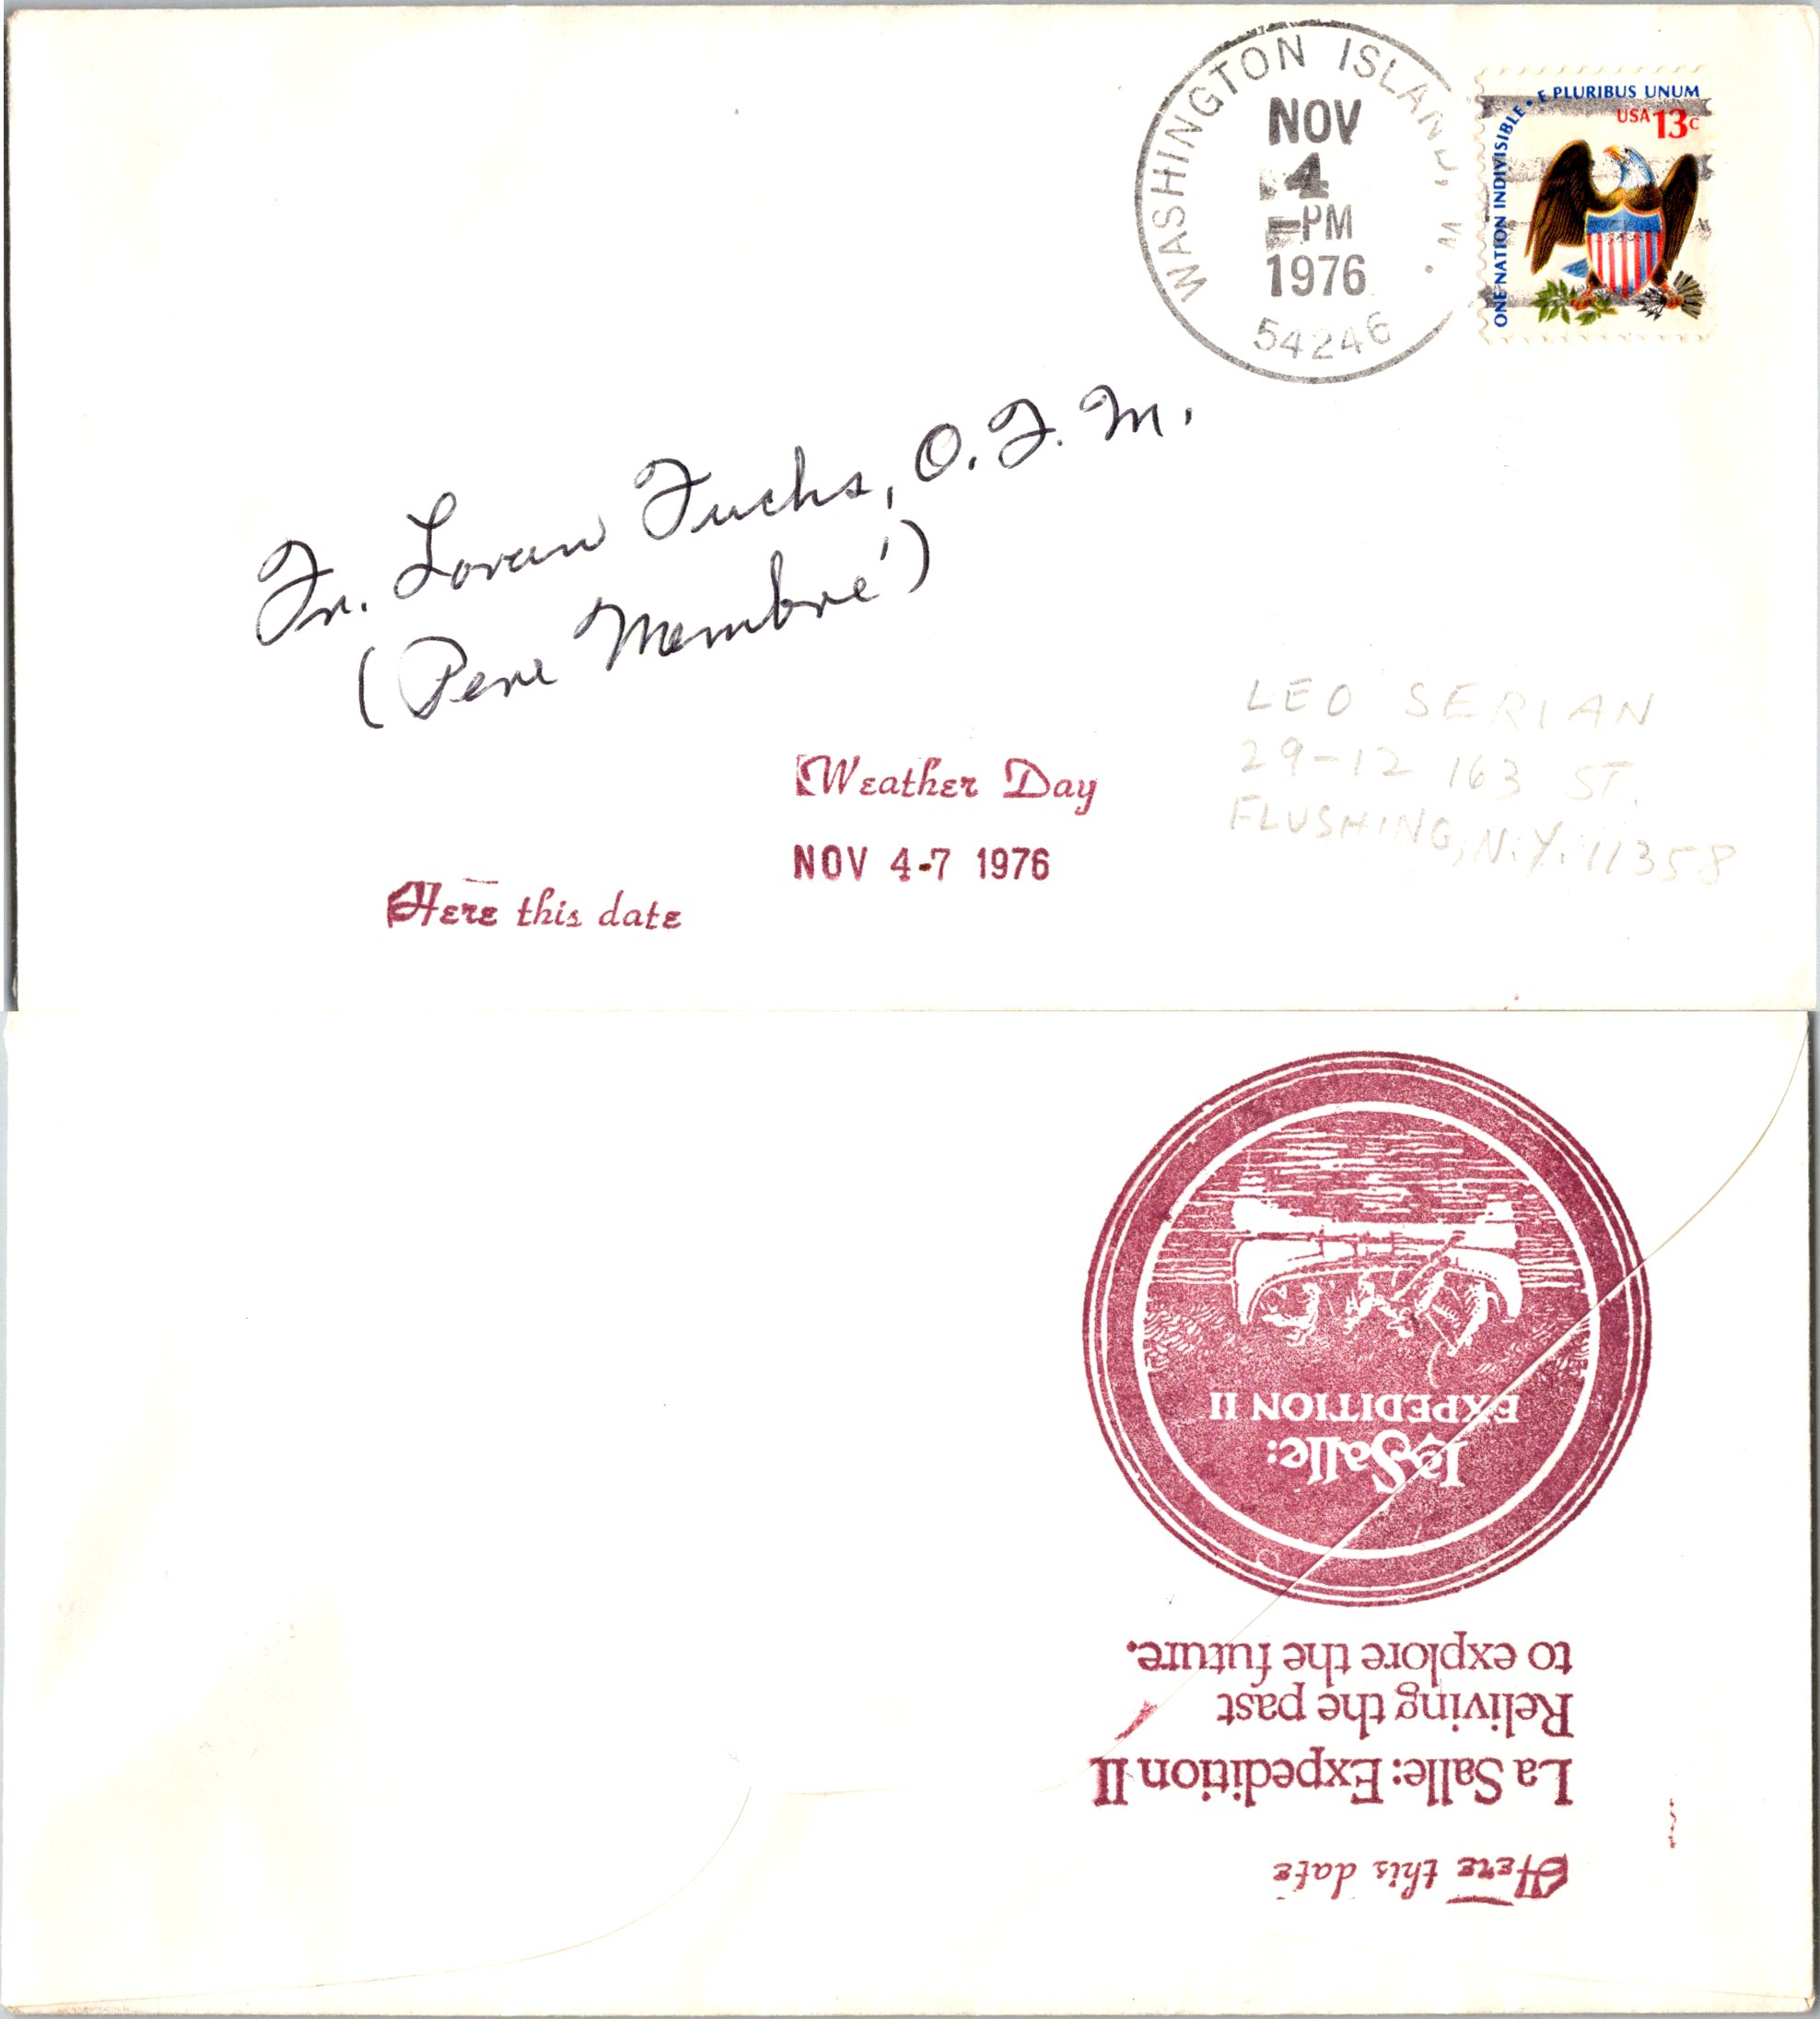 WASHINGTON ISLAND, W.
NOV
4
PM
1976
54246
ONE NATION INDIVISIBLE • E PLURIBUS UNUM
USA 13c
Fr. Loran Fuchs, O.F.M.
(Pere Membré)
LEO SERIAN
29-12 163 ST.
FLUSHING, N.Y. 11358
Weather Day
NOV 4-7 1976
Here this date
Here this date
La Salle: Expedition II
Reliving the past
to explore the future.
LaSalle:
EXPEDITION II